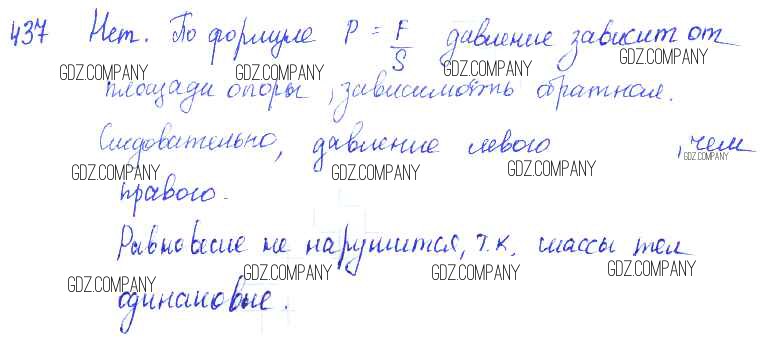 437 Нет. По формуле P = F/S давление зависит от
GDZ.COMPANY GDZ.COMPANY GDZ.COMPANY GDZ.COMPANY
площади опоры, зависимость обратная.
Следовательно, давление левого , чем
GDZ.COMPANY GDZ.COMPANY GDZ.COMPANY GDZ.COMPANY
правого.
Равновесие не нарушится, т.к. массы тел
GDZ.COMPANY GDZ.COMPANY GDZ.COMPANY GDZ.COMPANY
одинаковые.